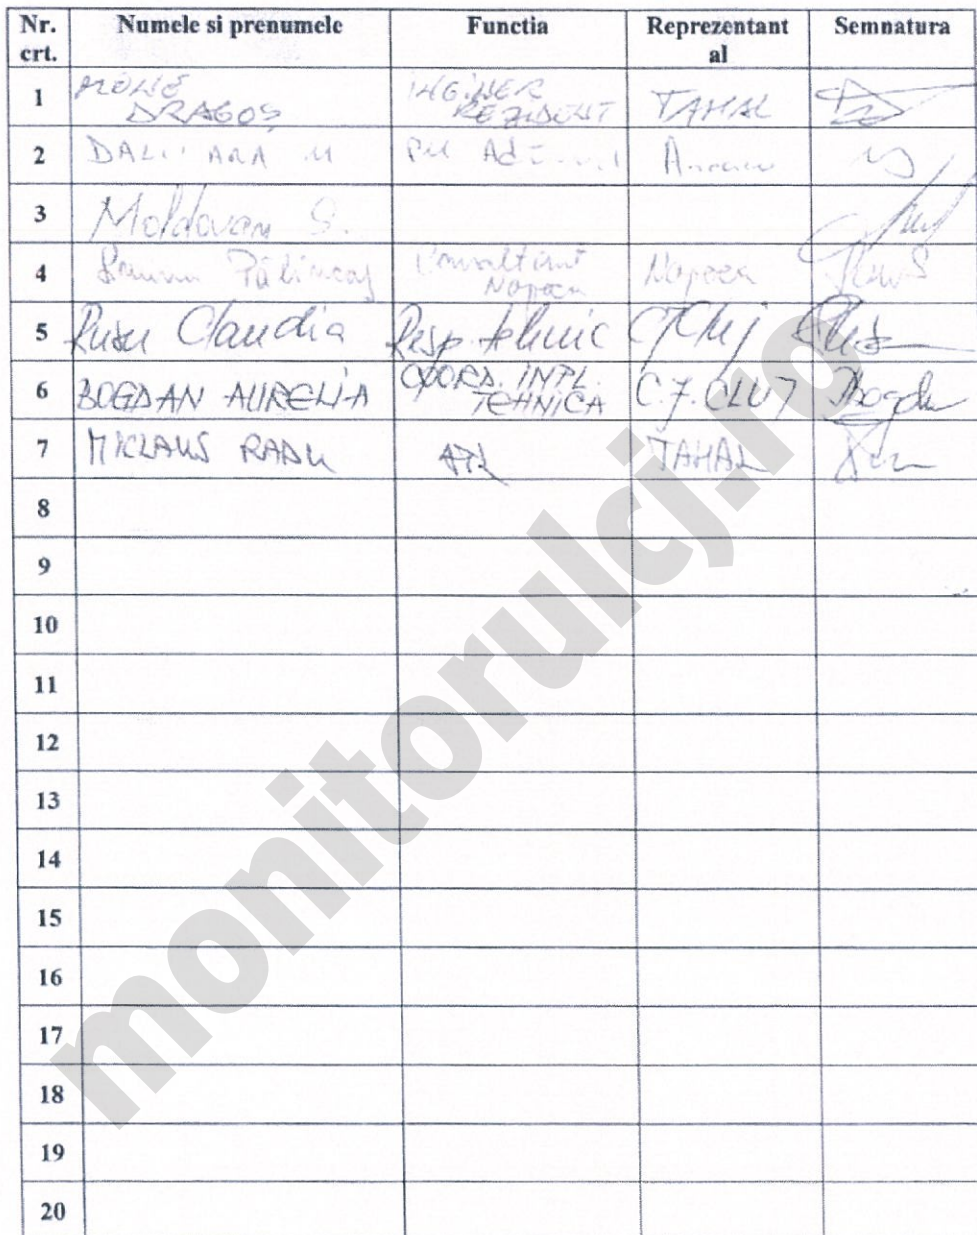 Nr. crt. Numele si prenumele Functia Reprezentant al Semnatura
1 DRAGOȘ INGINER REZIDENT TAHAL
2
3 Moldovan S.
4 Consultant Napoca Napoca
5 Rusu Claudia Resp. tehnic CJ Cluj
6 BOGDAN AURELIA COORD. IMPL. TEHNICA C.J. CLUJ Bogdan
7 MICLAUS RADU ATL TAHAL
8
9
10
11
12
13
14
15
16
17
18
19
20
monitorulcj.ro